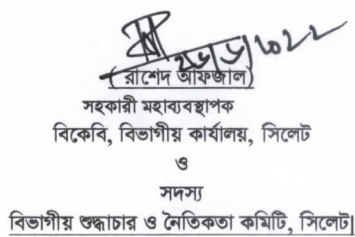 (রাশেদ আফজাল)
সহকারী মহাব্যবস্থাপক
বিকেবি, বিভাগীয় কার্যালয়, সিলেট
ও
সদস্য
বিভাগীয় শুদ্ধাচার ও নৈতিকতা কমিটি, সিলেট|